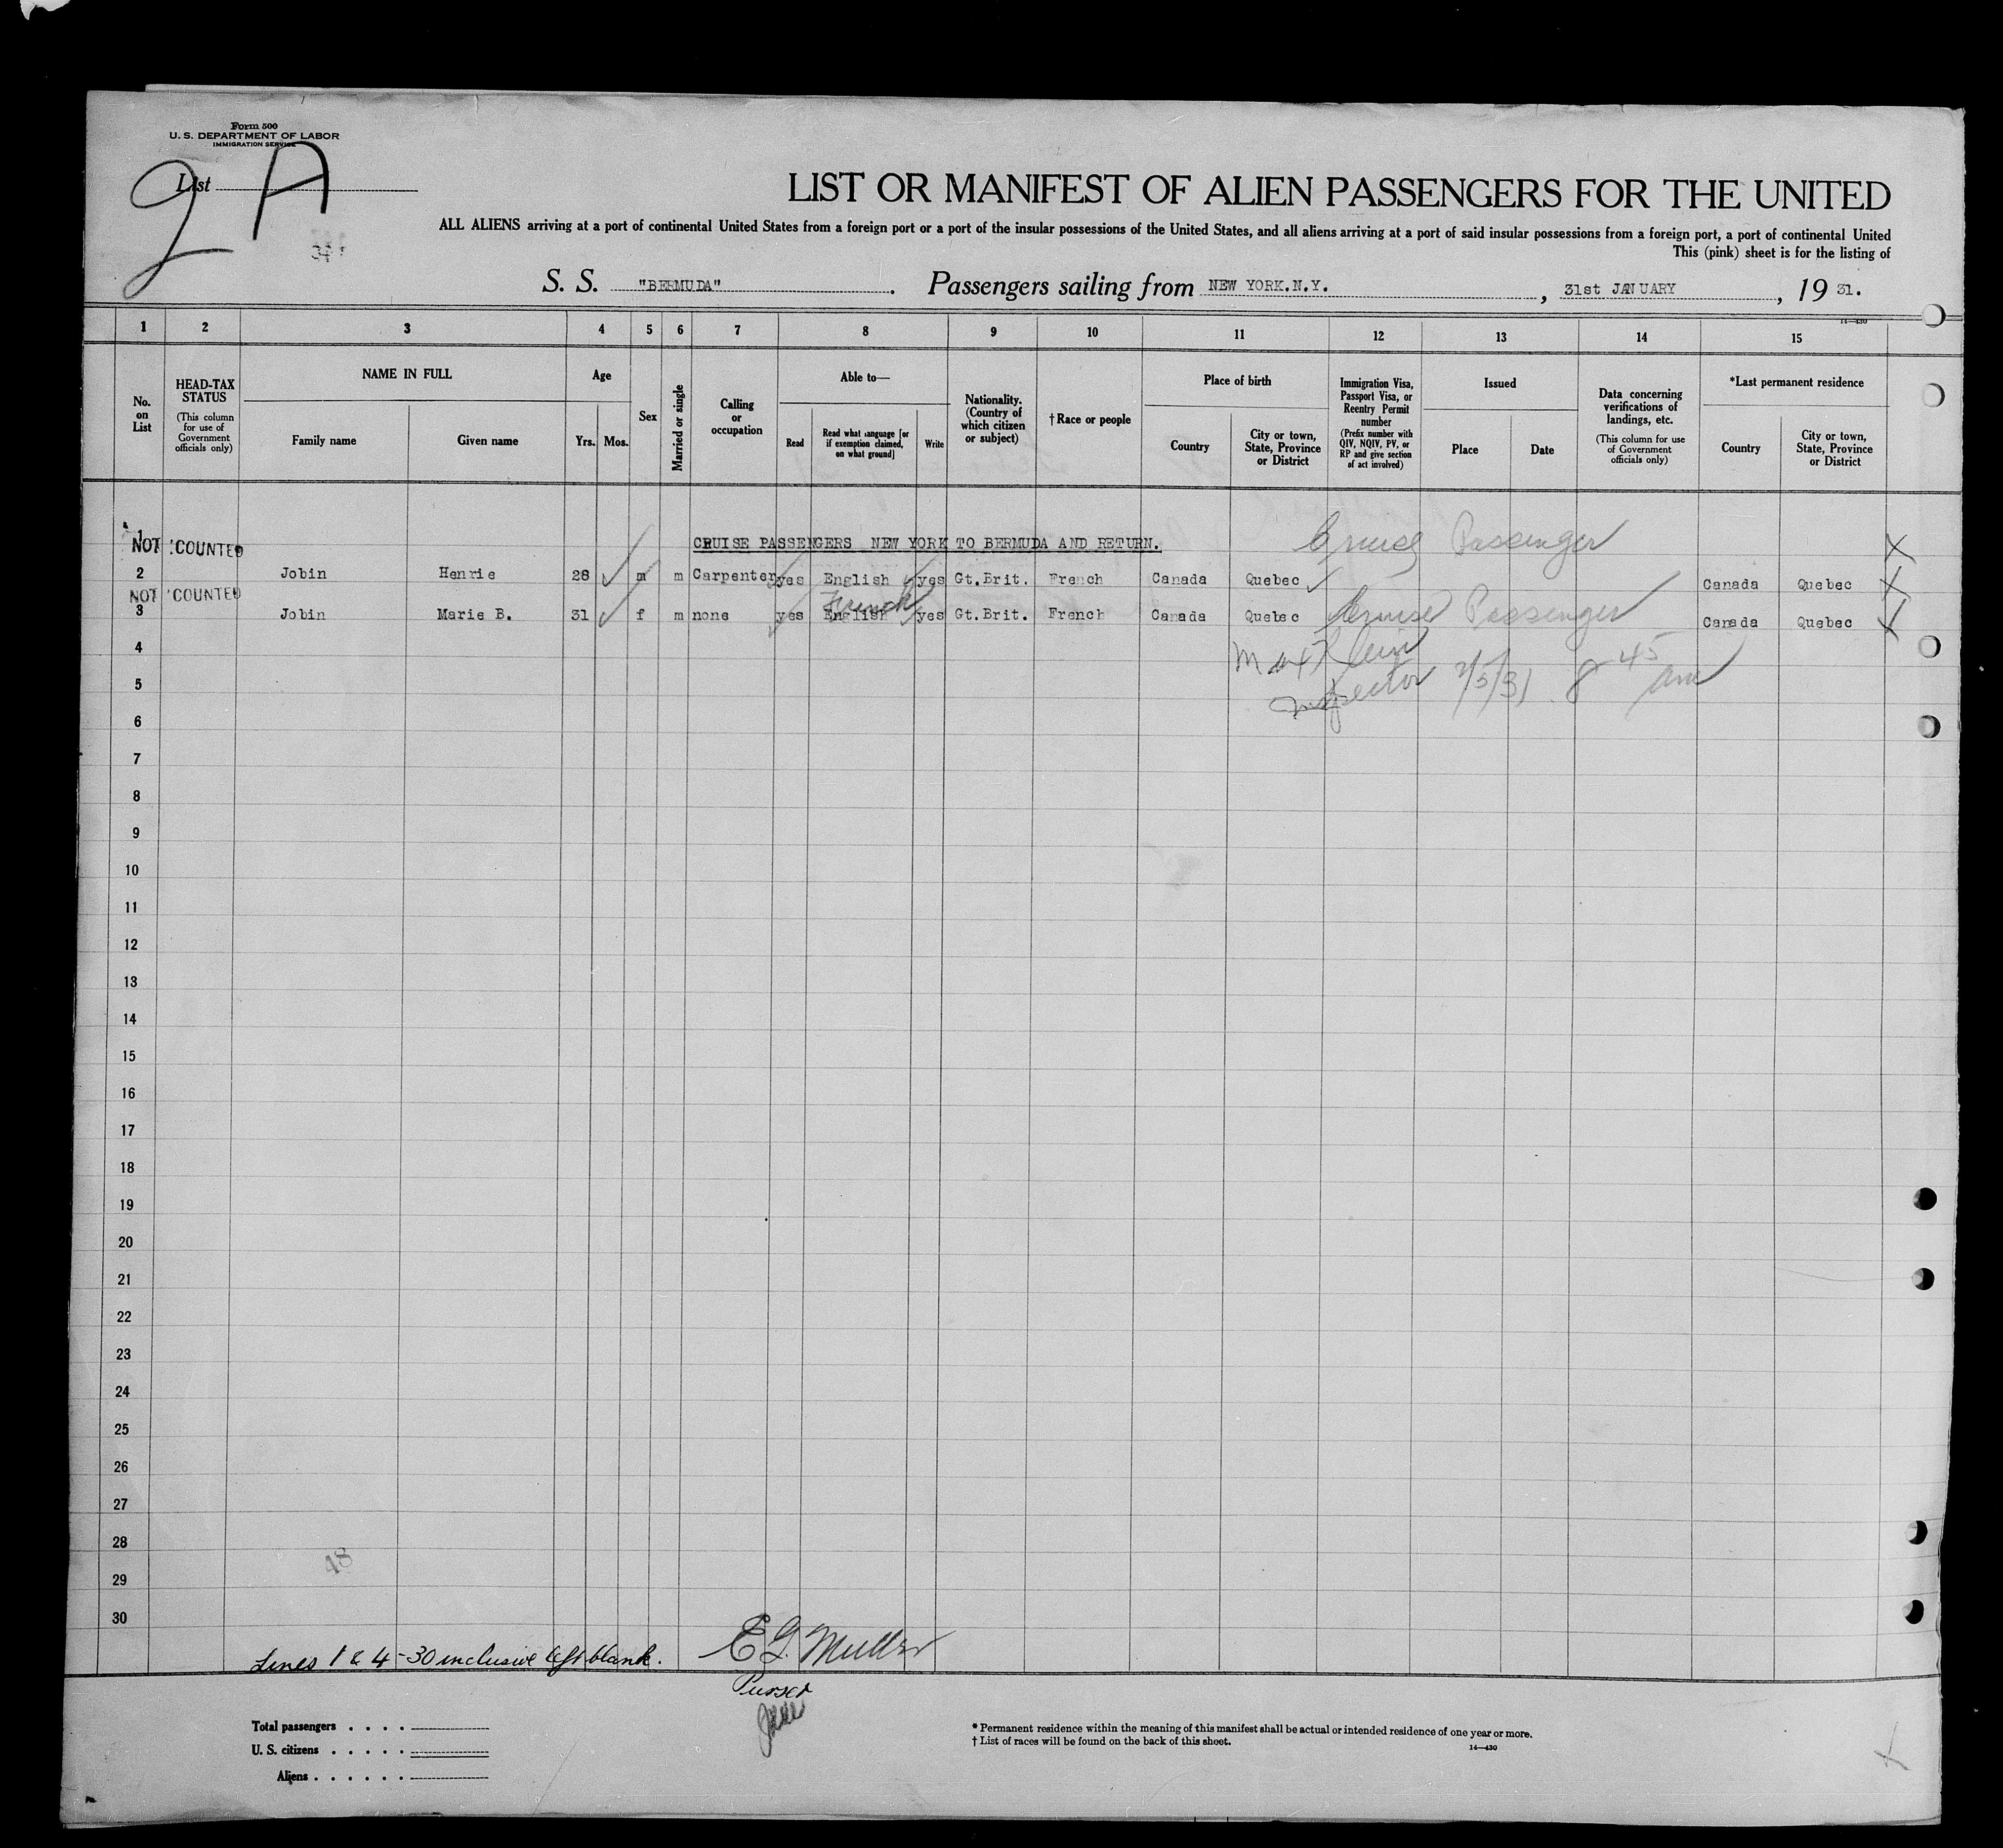 Form 500
U. S. DEPARTMENT OF LABOR
IMMIGRATION SERVICE
List
2 A
LIST OR MANIFEST OF ALIEN PASSENGERS FOR THE UNITED
ALL ALIENS arriving at a port of continental United States from a foreign port or a port of the insular possessions of the United States, and all aliens arriving at a port of said insular possessions from a foreign port, a port of continental United
This (pink) sheet is for the listing of
S. S. "BERMUDA". Passengers sailing from NEW YORK.N.Y., 31st JANUARY, 19 31.
14—430
1 2 3 4 5 6 7 8 9 10 11 12 13 14 15
No. on List
HEAD-TAX STATUS
(This column for use of Government officials only)
NAME IN FULL
Family name
Given name
Age
Yrs. Mos.
Sex
Married or single
Calling or occupation
Able to—
Read
Read what language [or if exemption claimed, on what ground]
Write
Nationality. (Country of which citizen or subject)
† Race or people
Place of birth
Country
City or town, State, Province or District
Immigration Visa, Passport Visa, or Reentry Permit number
(Prefix number with QIV, NQIV, PV, or RP and give section of act involved)
Issued
Place
Date
Data concerning verifications of landings, etc.
(This column for use of Government officials only)
*Last permanent residence
Country
City or town, State, Province or District
1
NOT COUNTED CRUISE PASSENGERS NEW YORK TO BERMUDA AND RETURN. Cruise Passenger X
2 Jobin Henrie 28 m m Carpenter yes English yes Gt.Brit. French Canada Quebec Canada Quebec X
NOT COUNTED French
3 Jobin Marie B. 31 f m none yes English yes Gt.Brit. French Canada Quebec Cruise Passenger Canada Quebec X
4 Max Klein
5 Inspector 2/5/31 8 45 am
6
7
8
9
10
11
12
13
14
15
16
17
18
19
20
21
22
23
24
25
26
27
28
48
29
30
Lines 1 & 4-30 inclusive left blank. E G Muller
Purser
Total passengers . . . .
U. S. citizens . . . . .
Aliens . . . . . .
* Permanent residence within the meaning of this manifest shall be actual or intended residence of one year or more.
† List of races will be found on the back of this sheet.
14—430